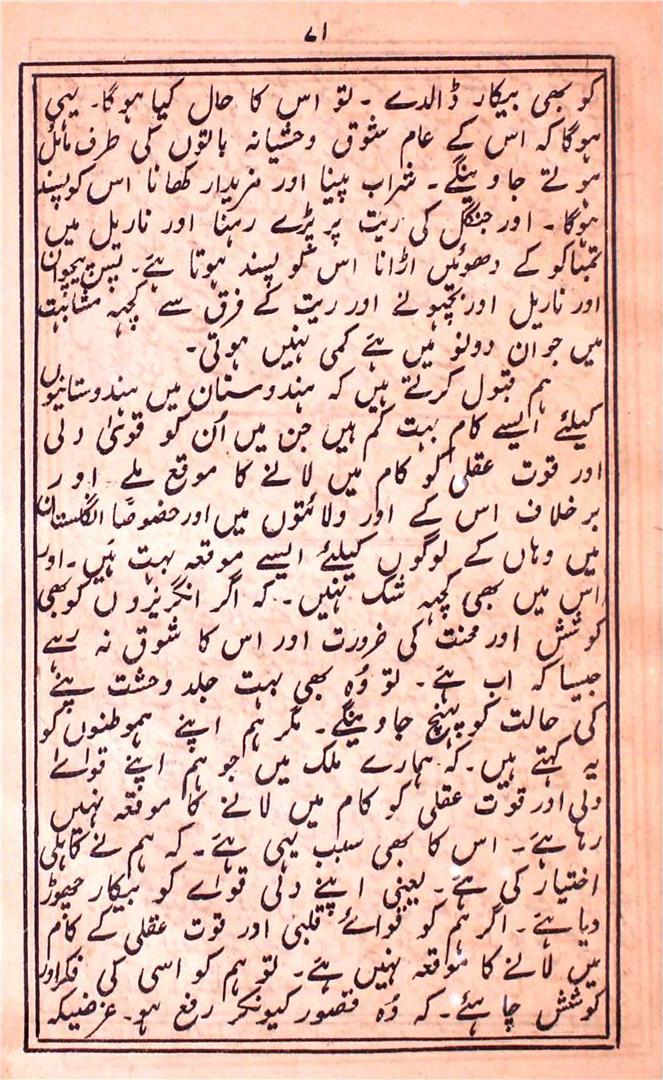 ۷۱
کو بھی بیکار ڈالدے ۔ تو اس کا حال کیا ہوگا۔ یہی
ہوگا کہ اس کے عام شوق وحشیانہ باتوں کی طرف مائل
ہوتے جاوینگے۔ شراب پینا اور مزیدار کھانا اس کو پسند
ہوگا ۔ اور جنگل کی ریت پر پڑے رہنا اور ناریل میں
تمباکو کے دھوئیں اڑانا اس کو پسند ہوتا ہے۔ پس پیچوان
اور ناریل اور بچھونے اور ریت کے فرق سے کچہہ مشابہت
میں جو ان دونو میں ہے کمی نہیں ہوتی۔
ہم قبول کرتے ہیں کہ ہندوستان میں ہندوستانیوں
کیلئے ایسے کام بہت کم ہیں جن میں اُن کو قویٰ دلی
اور قوت عقلی کو کام میں لانے کا موقع ملے اور
برخلاف اس کے اور ولائتوں میں اور خصوصًا انگلستان
میں وہاں کے لوگوں کیلئے ایسے موقعہ بہت ہیں۔ اور
اس میں بھی کچہہ شک نہیں۔ کہ اگر انگریزوں کو بھی
کوشش اور محنت کی ضرورت اور اس کا شوق نہ رہے
جیسا کہ اب ہے۔ تو وُہ بھی بہت جلد وحشت پنے
کی حالت کو پہنچ جاوینگے۔ مگر ہم اپنے ہموطنوں کو
یہ کہتے ہیں۔ کہ ہمارے ملک میں جو ہم اپنے قواے
دلی اور قوت عقلی کو کام میں لانے کا موقعہ نہیں
رہا ہے۔ اس کا بھی سبب یہی ہے۔ کہ ہم نے کاہلی
اختیار کی ہے۔ یعنی اپنے دلی قواے کو بیکار چھوڑ
دیا ہے۔ اگر ہم کو قوائے قلبی اور قوت عقلی کے کام
میں لانے کا موقعہ نہیں ہے۔ تو ہم کو اسی کی فکر اور
کوشش چاہئے۔ کہ وُہ قصور کیونکر رفع ہو۔ غرضیکہ